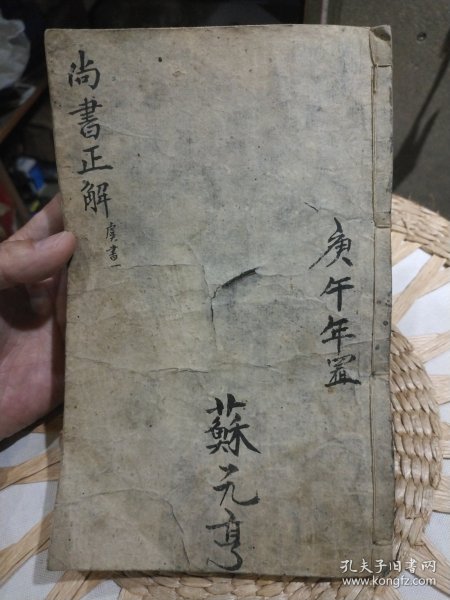 尚書正解
虞書一
庚午年置
蘇元亨
孔夫子旧书网
www.kongfz.com